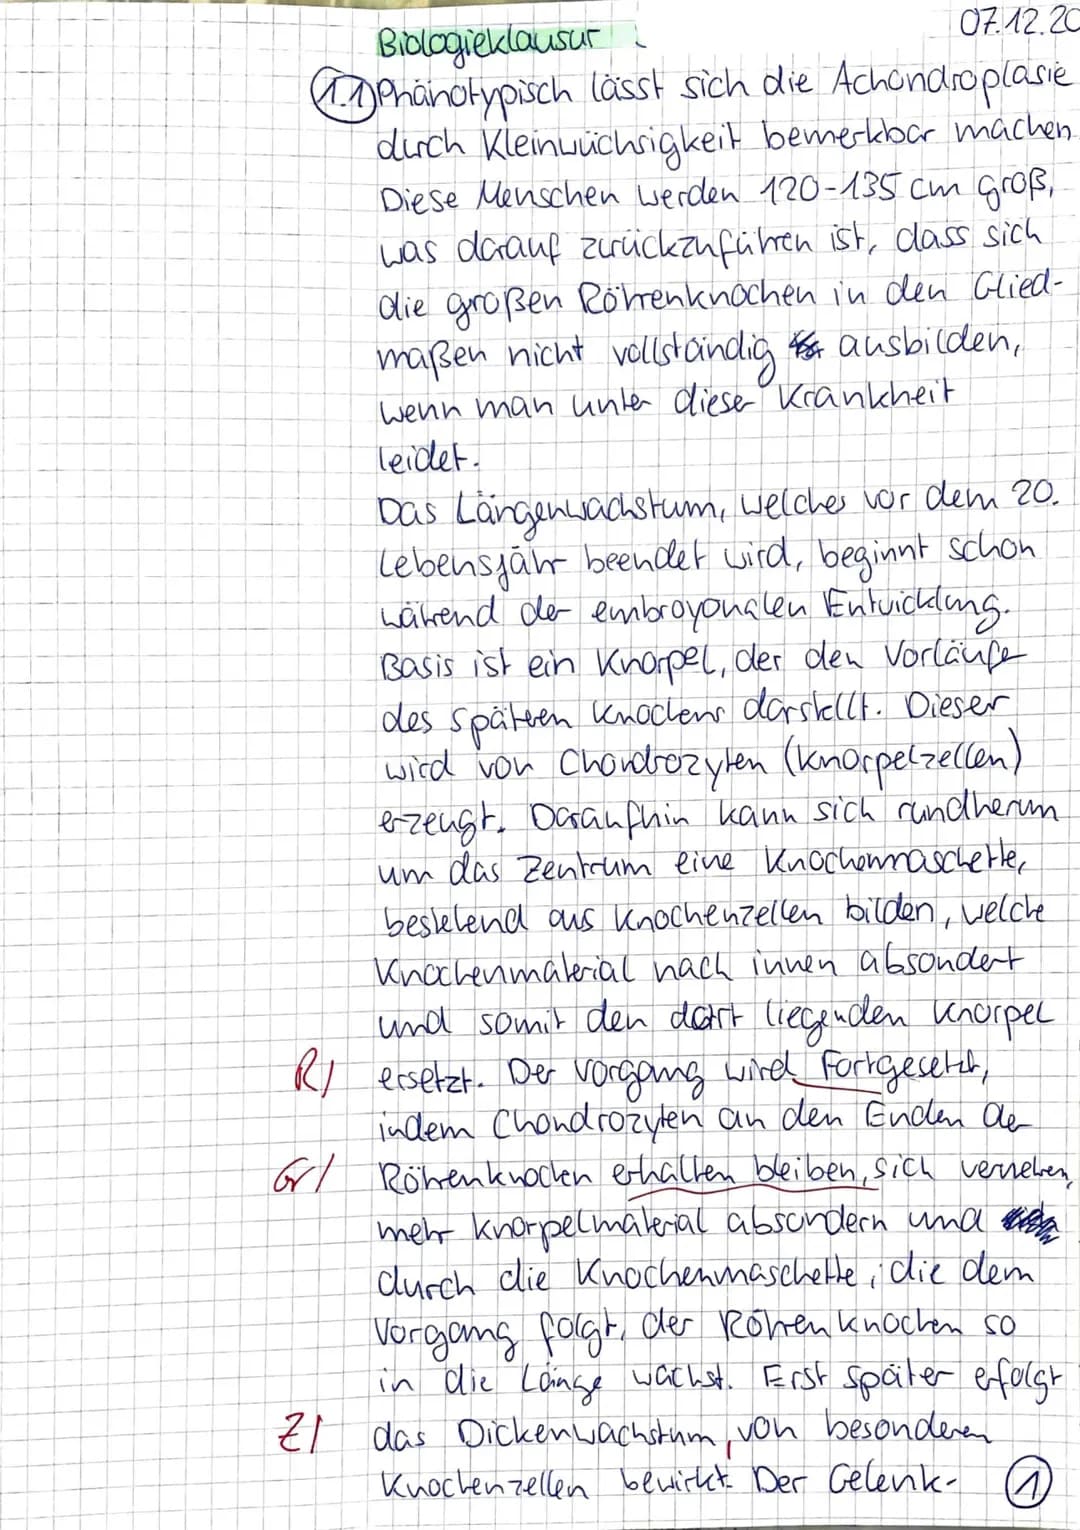 07.12.20
Biologieklausur
1.1 Phänotypisch lässt sich die Achondroplasie
durch Kleinwüchsigkeit bemerkbar machen
Diese Menschen werden 120-135 cm groß,
was darauf zurückzuführen ist, dass sich
die großen Röhrenknochen in den Glied-
maßen nicht vollständig ausbilden,
wenn man unter dieser Krankheit
leidet.
Das Längenwachstum, welches vor dem 20.
Lebensjahr beendet wird, beginnt schon
während der embroyonalen Entwicklung.
Basis ist ein Knorpel, der den Vorläufer
des späteren Knochens darstellt. Dieser
wird von Chondrozyten (Knorpelzellen)
erzeugt. Daraufhin kann sich rundherum
um das Zentrum eine Knochenmaschette,
bestehend aus Knochenzellen bilden, welche
Knochenmaterial nach innen absondert
und somit den dort liegenden Knorpel
R/ ersetzt. Der Vorgang wird Fortgesetzt,
indem Chondrozyten an den Enden der
Gr/ Röhrenknochen erhalten bleiben, sich vermehren,
mehr Knorpelmaterial absondern und
durch die Knochenmaschette, die dem
Vorgang folgt, der Röhrenknochen so
in die Länge wächst. Erst später erfolgt
Z/ das Dickenwachstum, von besonderen
Knochenzellen bewirkt. Der Gelenk-
1